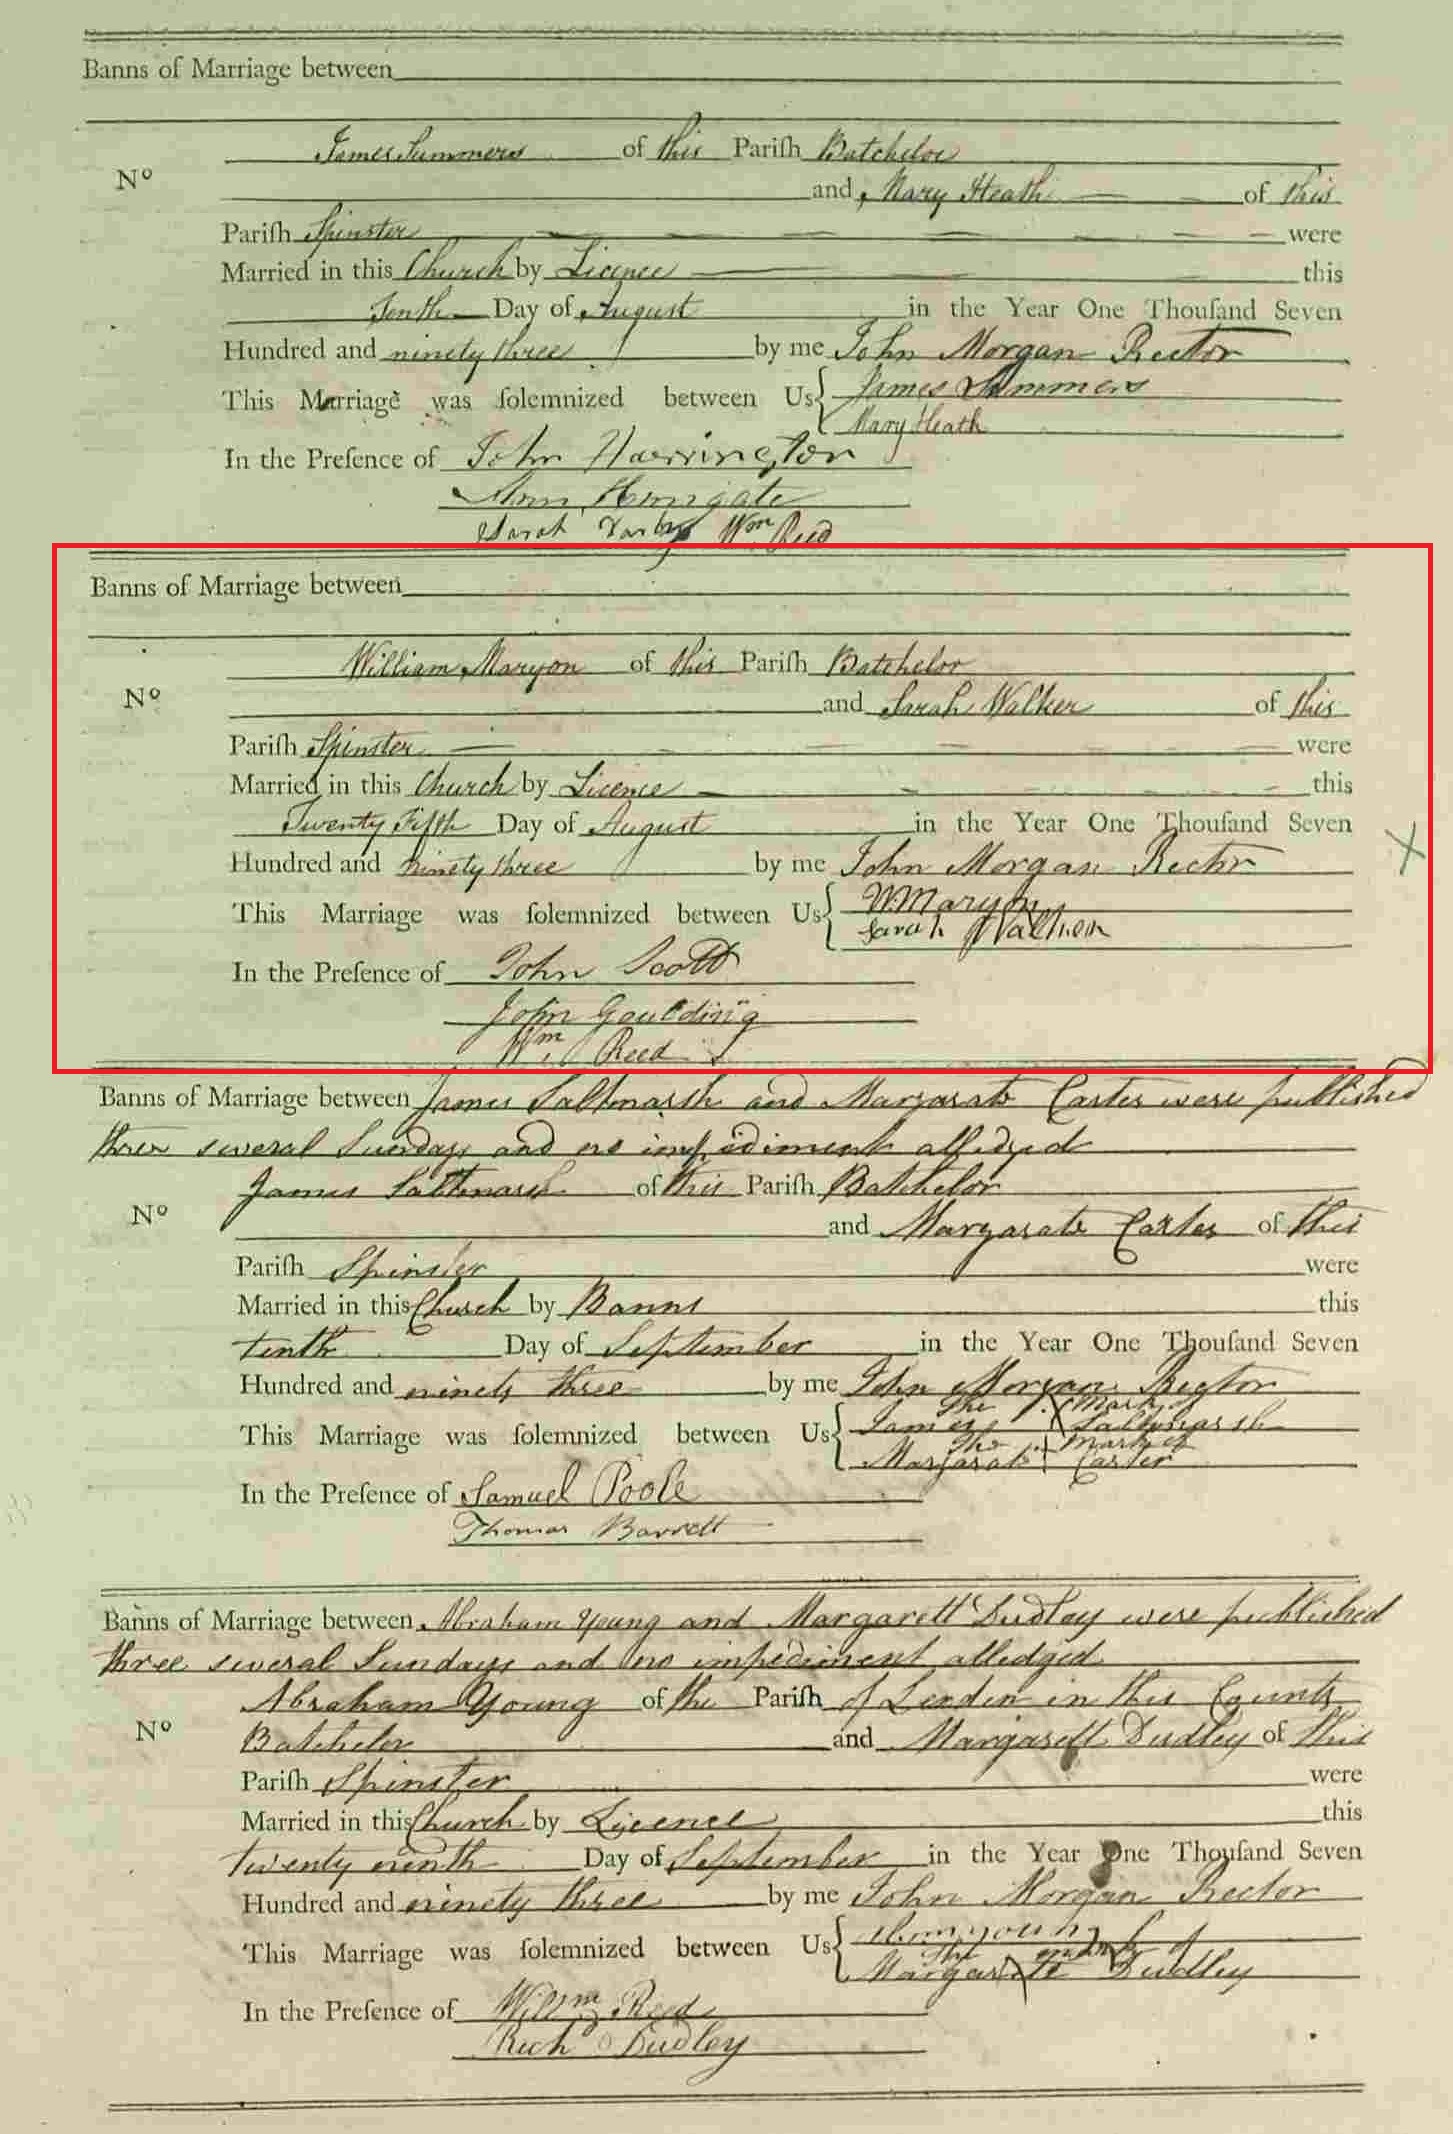 Banns of Marriage between
James Summers of this Pariſh Batchelor
No
and Mary Heath of this
Pariſh Spinster were
Married in this Church by Licence this
Tenth Day of August in the Year One Thouſand Seven
Hundred and ninety three by me John Morgan Rector
This Marriage was ſolemnized between Us James Summers
Mary Heath
In the Preſence of John Harrington
Ann Hungate
Sarah Darby Wm Reed
Banns of Marriage between
William Maryon of this Pariſh Batchelor
No
and Sarah Walker of this
Pariſh Spinster were
Married in this Church by Licence this
Twenty Fifth Day of August in the Year One Thouſand Seven
Hundred and ninety three by me John Morgan Rector
This Marriage was ſolemnized between Us W Maryon
Sarah Walker
In the Preſence of John Scott
John Goulding
Wm Reed
Banns of Marriage between James Saltmarsh and Margarate Carter were published
three several Sundays and no impediment alledged
James Saltmarsh of this Pariſh Batchelor
No
and Margarate Carter of this
Pariſh Spinster were
Married in this Church by Banns this
tenth Day of September in the Year One Thouſand Seven
Hundred and ninety three by me John Morgan Rector
The X Mark of
This Marriage was ſolemnized between Us James Saltmarsh
The X Mark of
Margarate Carter
In the Preſence of Samuel Poole
Thomas Barrett
Banns of Marriage between Abraham Young and Margarett Dudley were published
three several Sundays and no impediment alledged
Abraham Young of the Pariſh of in this County
No
Batchelor and Margarett Dudley of this
Pariſh Spinster were
Married in this Church by Licence this
twenty ninth Day of September in the Year One Thouſand Seven
Hundred and ninety three by me John Morgan Rector
This Marriage was ſolemnized between Us young
The mark of
Margarete Dudley
In the Preſence of Willm Reed
Richd Dudley